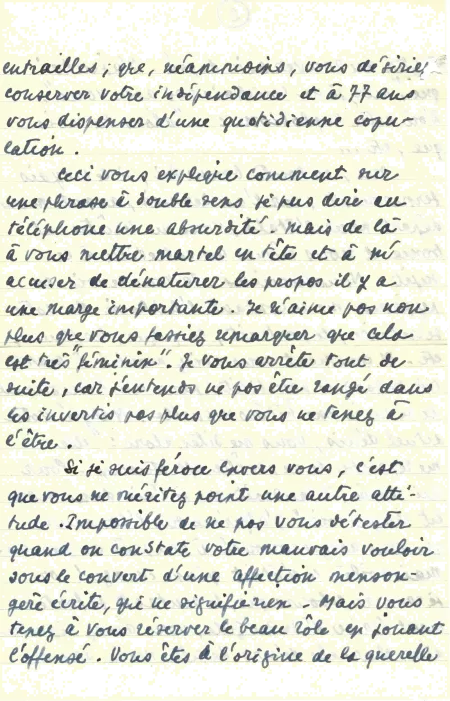 entrailles ; que, néammoins, vous désiriez
conserver votre indépendance et à 77 ans
vous dispenser d'une quotidienne copu-
lation.
Ceci vous explique comment sur
une phrase à double sens je pus dire au
téléphone une absurdité. Mais de là
à vous mettre martel en tête et à m'
accuser de dénaturer les propos il y a
une marge importante. Je n'aime pas non
plus que vous fassiez remarquer que cela
est très "féminin". Je vous arrête tout de
suite, car j'entends ne pas être rangé dans
les invertis pas plus que vous ne tenez à
l'être.
Si je suis féroce envers vous, c'est
que vous ne méritez point une autre atti-
tude. Impossible de ne pas vous détester
quand on constate votre mauvais vouloir
sous le couvert d'une affection menson-
gère écrite, qui ne signifie rien. Mais vous
tenez à vous réserver le beau rôle en jouant
l'offensé. Vous êtes à l'origine de la querelle